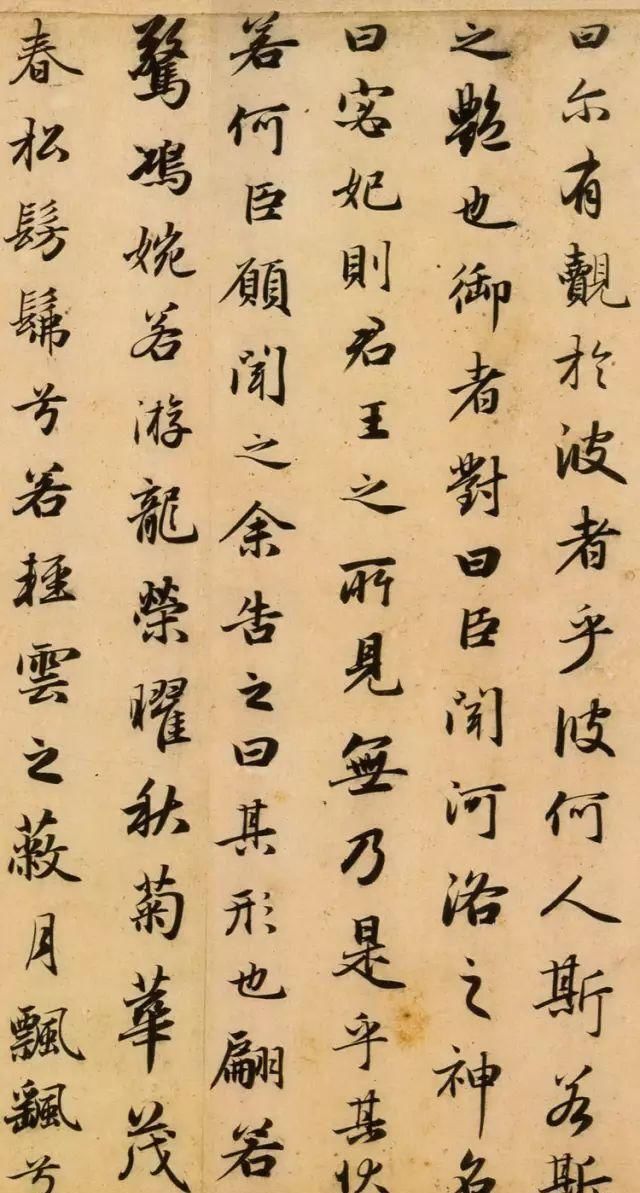 曰尔有觌於波者乎彼何人斯若斯
之艷也御者對曰臣聞河洛之神名
曰宓妃則君王之所見無乃是乎其状
若何臣願聞之余告之曰其形也翩若
驚鴻婉若游龍榮曜秋菊華茂
春松髣髴兮若輕雲之蔽月飄飖兮